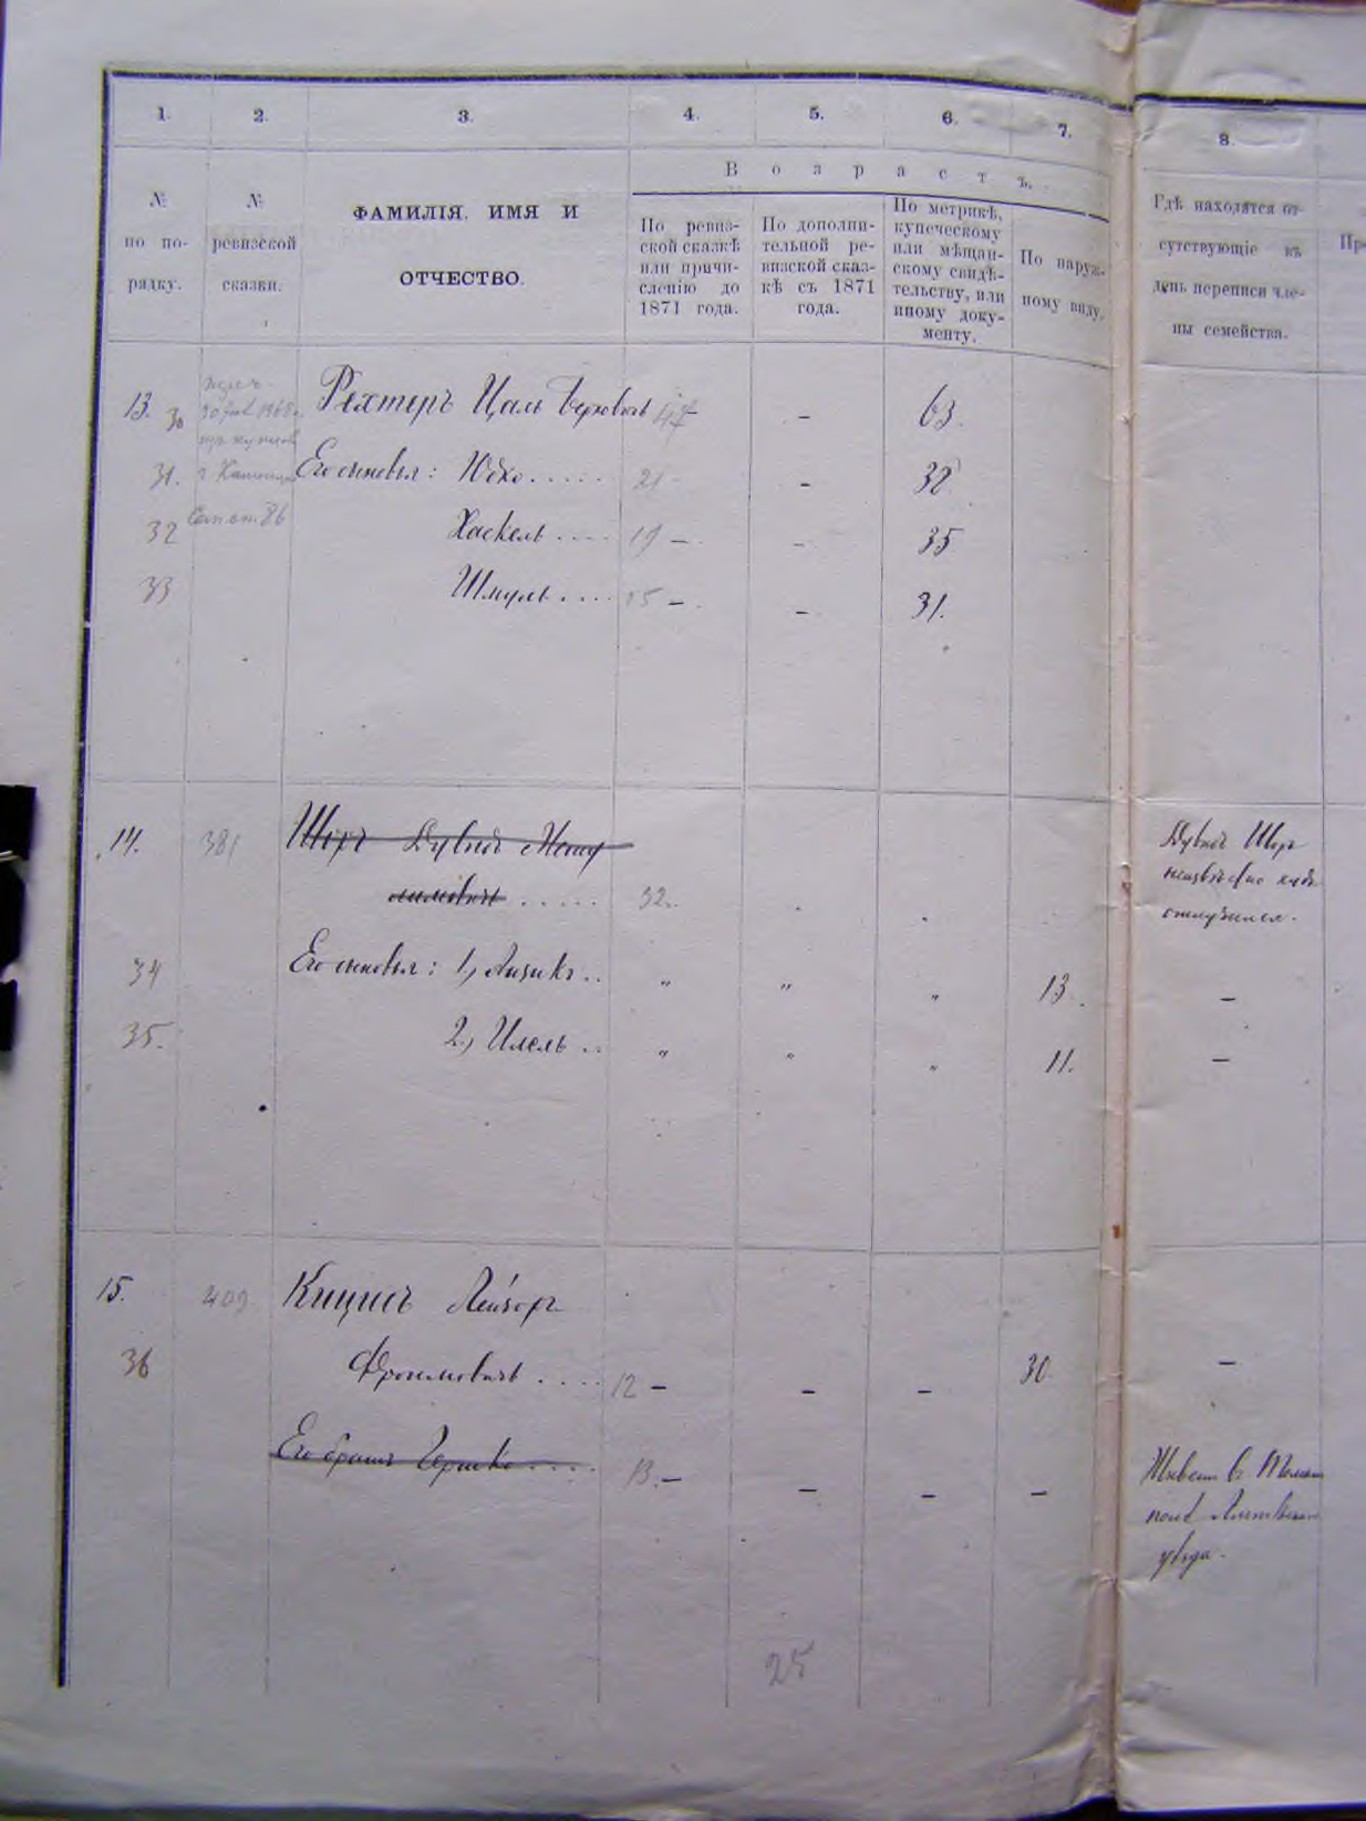 1. 2. 3. 4. 5. 6. 7. 8.
Возрастъ.
№ по по-
рядку.
№
ревизской
сказки.
ФАМИЛІЯ, ИМЯ И
ОТЧЕСТВО.
По ревиз-
ской сказкѣ
или причи-
сленію до
1871 года.
По дополни-
тельной ре-
визской сказ-
кѣ съ 1871
года.
По метрикѣ,
купеческому
или мѣщан-
скому свидѣ-
тельству, или
иному доку-
менту.
По наруж-
ному виду.
Гдѣ находятся от-
сутствующіе въ
день переписи чле-
ны семейства.
Пр
13. 30 Рехтеръ Цаль Берковичъ 47 – 63.
31. Его сыновья: Юдко..... 21 – 32
32 Хаскель.... 19 – – 35
33 Шмуль.... 15 – – 31.
14. 381 Шоръ Дувидъ
..... 32. Дувидъ Шоръ
неизвѣстно куда
отлучился.
34 Его сыновья: 1., Айзикъ.. „ „ „ 13. –
35. 2., Илель.. „ „ „ 11. –
15. 409 Кицисъ Лейзоръ
36 Фроимовичъ.... 12 – – – 30. –
Его братъ Гершко.... 13. – – – – Живетъ въ
уѣзда.
25